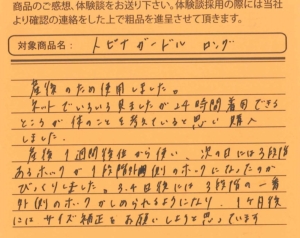 商品のご感想、体験談をお送り下さい。体験談採用の際には当社
より確認の連絡をした上で粗品を進呈させて頂きます。
対象商品名: トビナ ガードル ロング
産後のため使用しました。
ネットでいろいろ見ましたが24時間着用できる
ところが体のことを考えていると思い購入
しました。
産後1週間 から使い、次の日には3段階
あるホックが1段階外側のホックになったのが
びっくりしました。3.4日後には3段階の一番
外側のホックがしめられるようになり、1ヶ月後
にはサイズ補正をお願いしようと思っています